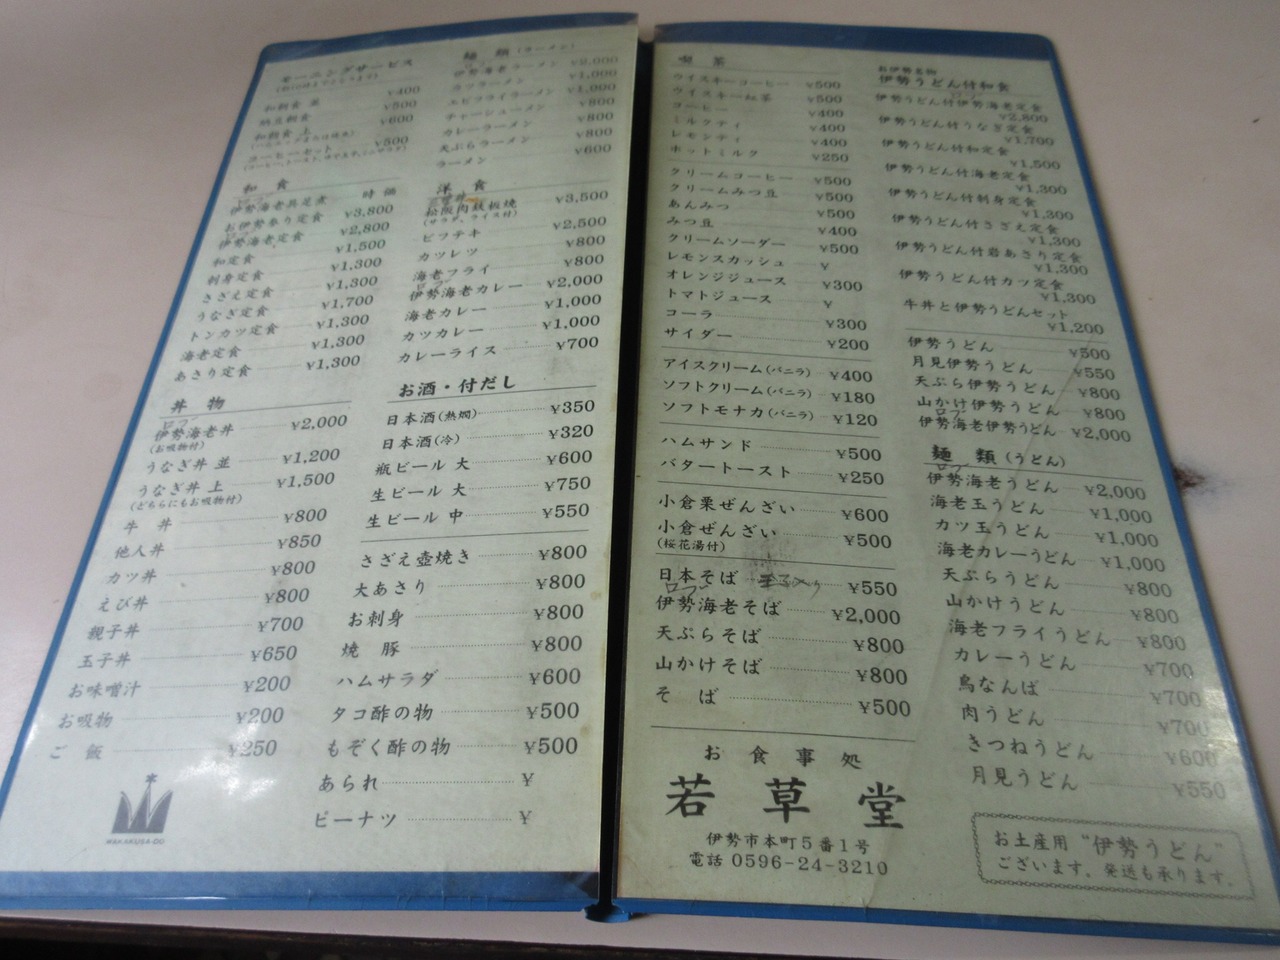 モーニングサービス
和朝食 並 ¥400
納豆朝食 ¥500
和朝食 上 ¥600
コーヒーセット ¥500
和 食
ロブ
伊勢海老具足煮 時 価
お伊勢参り定食 ¥3,800
ロブ
伊勢海老定食 ¥2,800
和定食 ¥1,500
刺身定食 ¥1,300
さざえ定食 ¥1,300
うなぎ定食 ¥1,700
トンカツ定食 ¥1,300
海老定食 ¥1,300
あさり定食 ¥1,300
丼 物
ロブ
伊勢海老丼 ¥2,000
(お吸物付)
うなぎ丼 並 ¥1,200
うなぎ丼 上 ¥1,500
(どちらにもお吸物付)
牛 丼 ¥800
他人丼 ¥850
カツ丼 ¥800
えび丼 ¥800
親子丼 ¥700
玉子丼 ¥650
お味噌汁 ¥200
お吸物 ¥200
ご 飯 ¥250
WAKAKUSA-DO
麺 類(ラーメン)
伊勢海老ラーメン ¥2,000
カツラーメン ¥1,000
エビフライラーメン ¥1,000
チャーシューメン ¥800
カレーラーメン ¥800
天ぷらラーメン ¥800
ラーメン ¥600
洋 食
松阪肉鉄板焼 ¥3,500
(サラダ、ライス付)
ビフテキ ¥2,500
カツレツ ¥800
海老フライ ¥800
ロブ
伊勢海老カレー ¥2,000
海老カレー ¥1,000
カツカレー ¥1,000
カレーライス ¥700
お酒・付だし
日本酒(熱燗) ¥350
日本酒(冷) ¥320
瓶ビール 大 ¥600
生ビール 大 ¥750
生ビール 中 ¥550
さざえ壺焼き ¥800
大あさり ¥800
お刺身 ¥800
焼 豚 ¥800
ハムサラダ ¥600
タコ酢の物 ¥500
もぞく酢の物 ¥500
あられ ¥
ピーナツ ¥
喫 茶
ウイスキーコーヒー ¥500
ウイスキー紅茶 ¥500
コーヒー ¥400
ミルクティ ¥400
レモンティ ¥400
ホットミルク ¥250
クリームコーヒー ¥500
クリームみつ豆 ¥500
あんみつ ¥500
みつ豆 ¥400
クリームソーダー ¥500
レモンスカッシュ ¥
オレンジジュース ¥300
トマトジュース ¥
コーラ ¥300
サイダー ¥200
アイスクリーム(バニラ) ¥400
ソフトクリーム(バニラ) ¥180
ソフトモナカ(バニラ) ¥120
ハムサンド ¥500
バタートースト ¥250
小倉栗ぜんざい ¥600
小倉ぜんざい ¥500
(桜花湯付)
日本そば ¥550
ロブ
伊勢海老そば ¥2,000
天ぷらそば ¥800
山かけそば ¥800
そ ば ¥500
お食事処
若草堂
伊勢市本町5番1号
電話 0596-24-3210
お伊勢名物
伊勢うどん付和食
伊勢うどん付伊勢海老定食 ¥2,800
伊勢うどん付うなぎ定食 ¥1,700
伊勢うどん付和定食 ¥1,500
伊勢うどん付海老定食 ¥1,300
伊勢うどん付刺身定食 ¥1,300
伊勢うどん付さざえ定食 ¥1,300
伊勢うどん付岩あさり定食 ¥1,300
伊勢うどん付カツ定食 ¥1,300
牛丼と伊勢うどんセット ¥1,200
伊勢うどん ¥500
月見伊勢うどん ¥550
天ぷら伊勢うどん ¥800
山かけ伊勢うどん ¥800
ロブ
伊勢海老伊勢うどん ¥2,000
麺 類(うどん)
ロブ
伊勢海老うどん ¥2,000
海老玉うどん ¥1,000
カツ玉うどん ¥1,000
海老カレーうどん ¥1,000
天ぷらうどん ¥800
山かけうどん ¥800
海老フライうどん ¥800
カレーうどん ¥700
鳥なんば ¥700
肉うどん ¥700
きつねうどん ¥600
月見うどん ¥550
お土産用“伊勢うどん”
ございます。発送も承ります。